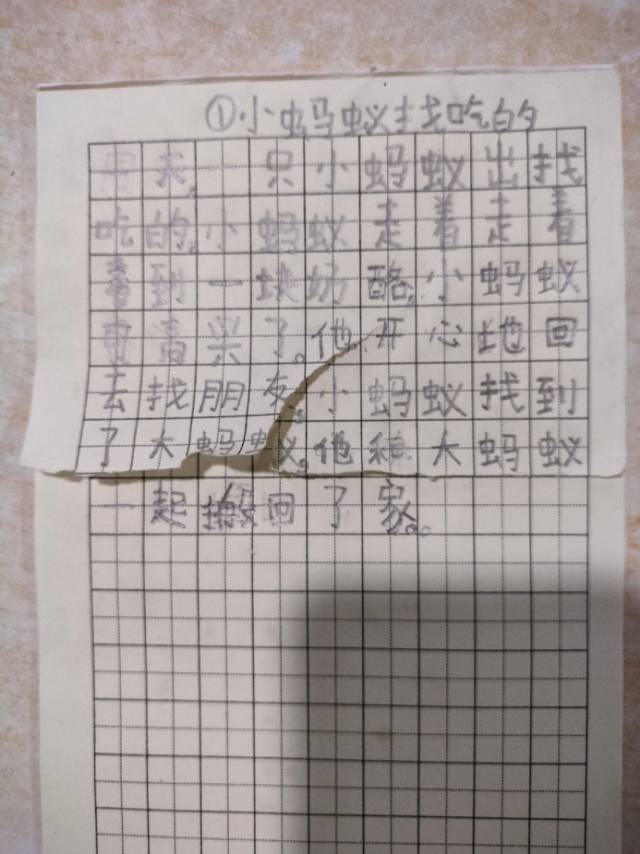 ①小蚂蚁找吃的
天,一只小蚂蚁出找
吃的。小蚂蚁走着走着
看到一块奶酪,小蚂蚁
高了。他开心地回
去找朋友。小蚂蚁找到
了大蚂蚁。他和大蚂蚁
一起搬回了家。